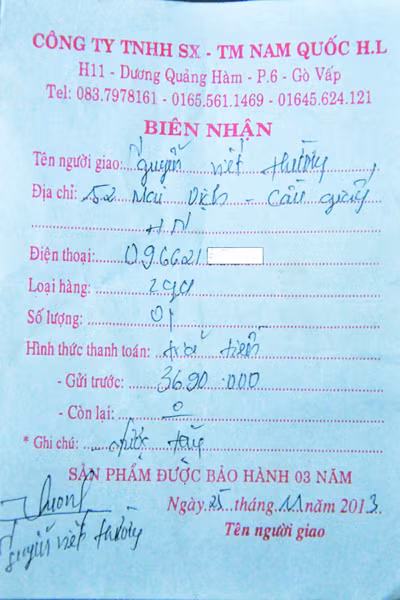 CÔNG TY TNHH SX - TM NAM QUỐC H.L
H11 - Dương Quảng Hàm - P.6 - Gò Vấp
Tel: 083.7978161 - 0165.561.1469 - 01645.624.121
BIÊN NHẬN
Tên người giao: Nguyễn viết thường
Địa chỉ: 52 Mai Dịch - Cầu giấy
HN
Điện thoại: 096621
Loại hàng:
Số lượng: 01
Hình thức thanh toán: trả tiền
- Gửi trước: 3690.000
- Còn lại: 0
* Ghi chú:
SẢN PHẨM ĐƯỢC BẢO HÀNH 03 NĂM
Ngày 25 tháng 11 năm 2013
Tên người giao
Nguyễn viết thường